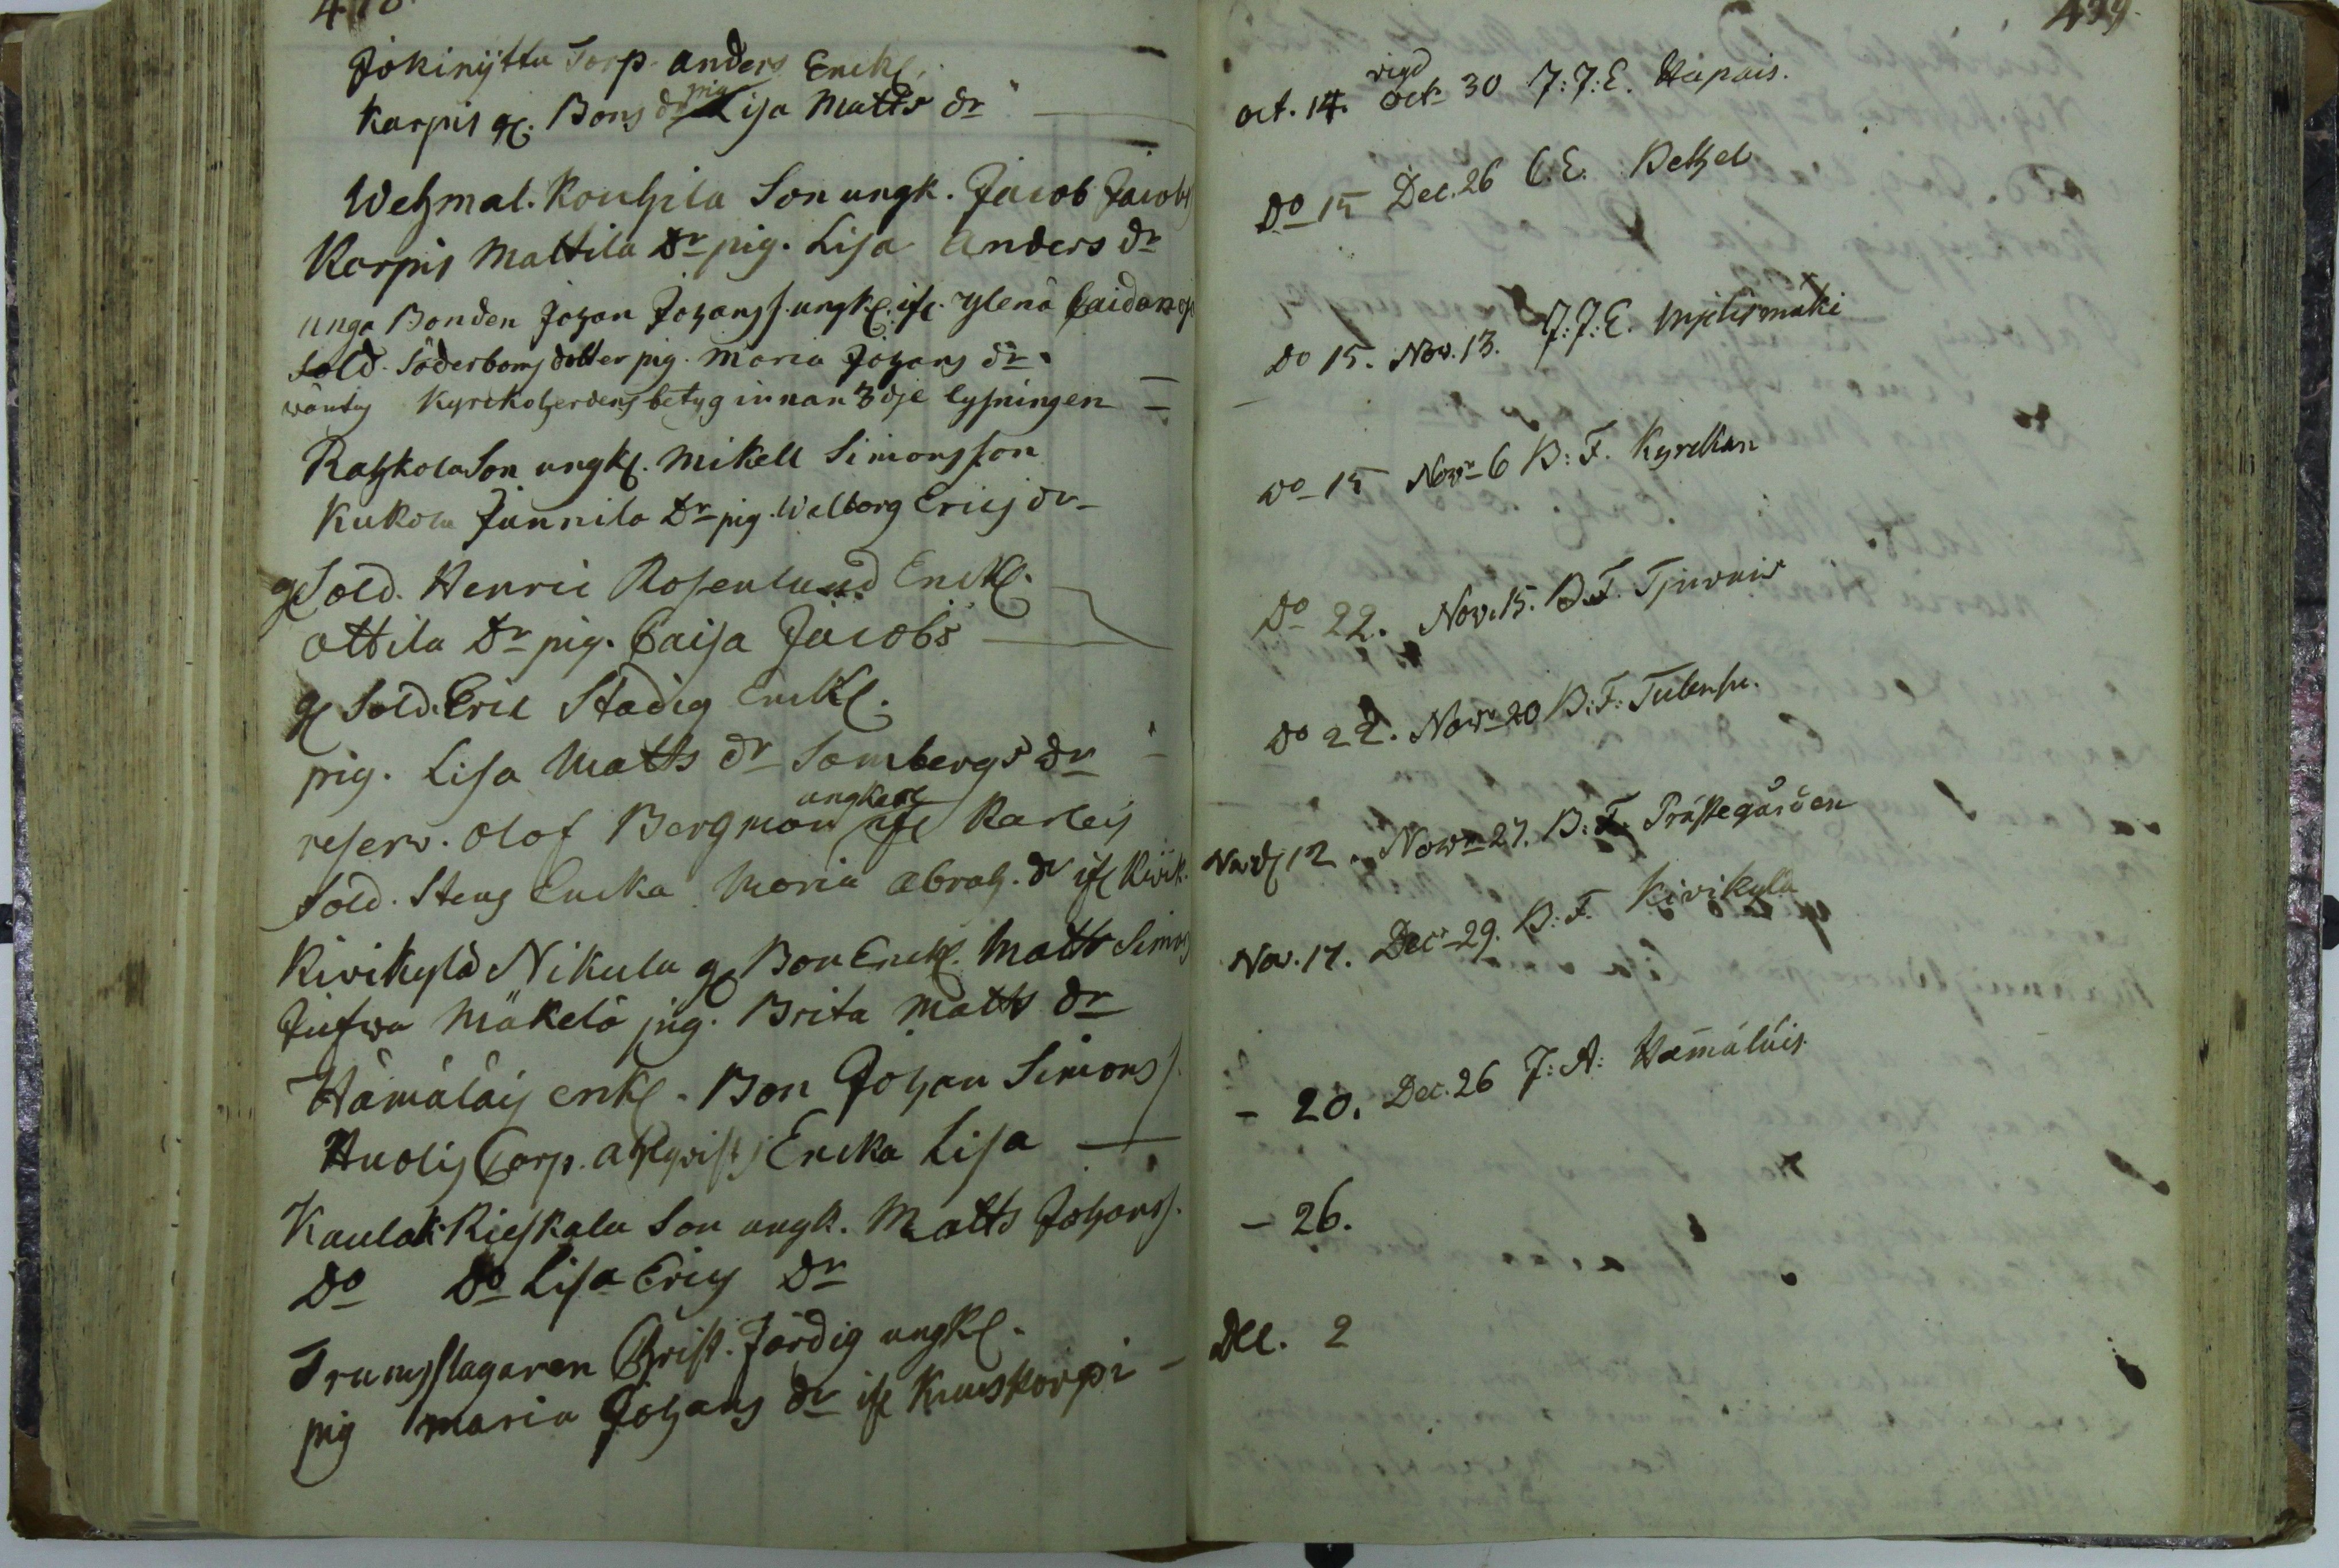 Jokinÿttu Torp. Anders Enckl.
Karpis gl. Bons dr pig Lisa Matts dr
Wehmal. Kouhila Son ungk. Jacob Jacobs
Karpis Mattila Dr pig. Lisa Anders dr
unga Bonden Johan Johanss. ungkl. ifr. Ylenä
Sold. Söderboms dotter pig. Maria Johans dr.
wäntas Kyrckoherdens betyg innan 3dje lysningen
Rahkola Son ungkl. Mikell Simonsson
Kukola Junnila Dr pig. Walborg Erics dr
gl Sold. Henric Rosenlund Enckl.
Ottila Dr pig. Caisa Jacobs
gl Sold. Eric Stadig Enckl.
pig. Lisa Matts dr Sombergs dr
reserv. Olof Bergman ungkarl ifr Karleis
Sold. Stens Encka Maria Abrah. dr ifr Kivik.
Kivikylä Nikula gl Bon Enckl. Matts Simons
Mäkelä pig. Brita Matts dr
Hämäläis enkl. Bon Johan Simonss.
Huolis Corp. Ahlqvists Encka Lisa
Kaulak Rieskala Son ungk. Matts Johanss.
Do Do Lisa Erics Dr
Trumslagaren Christ. Färdig ungkl.
pig Maria Johans dr ifr Kruuskorpi
Oct. 14. vigd Oct. 30 J:J:E. Hapais.
Do 15 Dec. 26 C.E.
Do 15. Nov. 13. J:J:E.
Do 15 Novr 6 B:F. Kyrckan
Do 22. Nov. 15. B.F.
Do 22. Novr 20 B:F:
12 Novr 27. B:F. Prästegården
Nov. 17. Decr 29. B:F. Kivikylä
- 20. Dec. 26 J:A: Hämäläis
- 26.
Dec. 2